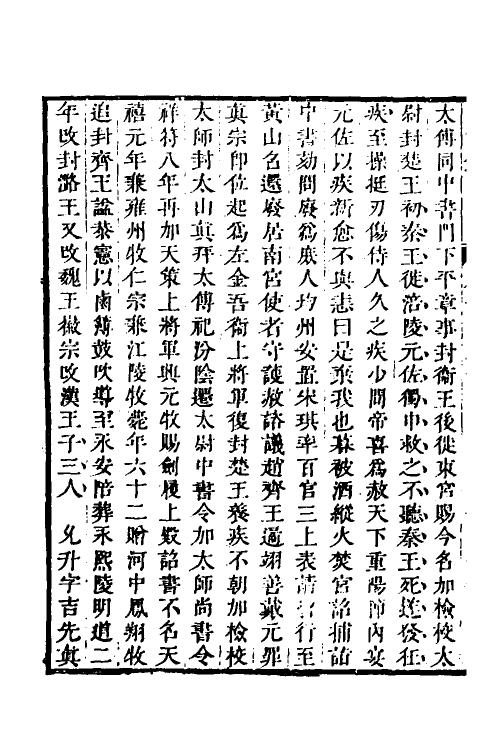 太傅同中書門下平章事封衛王後徙東宮賜今名加檢校太
尉封楚王初秦王徙涪陵元佐獨申救之不聽秦王死遂發狂
疾至操挺刃傷侍人久之疾少間帝喜爲赦天下重陽節內宴
元佐以疾新愈不與恚曰是棄我也暮被酒縱火焚宮詔捕詣
中書劾問廢爲庶人均州安置宋琪率百官三上表請留行至
黃山名還廢居南宮使者守護赦諮議趙齊王遹翊善戴元罪
眞宗卽位起爲左金吾衛上將軍復封楚王養疾不朝加檢校
太師封太山眞拜太傅祀汾陰還太尉中書令加太師尚書令
祥符八年再加天策上將軍興元牧賜劍履上殿詔書不名天
禧元年兼雍州牧仁宗兼江陵牧薨年六十二贈河中鳳翔牧
追封齊王諡恭憲以鹵簿鼓吹導至永安陪葬永熙陵明道二
年改封潞王又改魏王徽宗改漢王子三人 允升字吉先眞